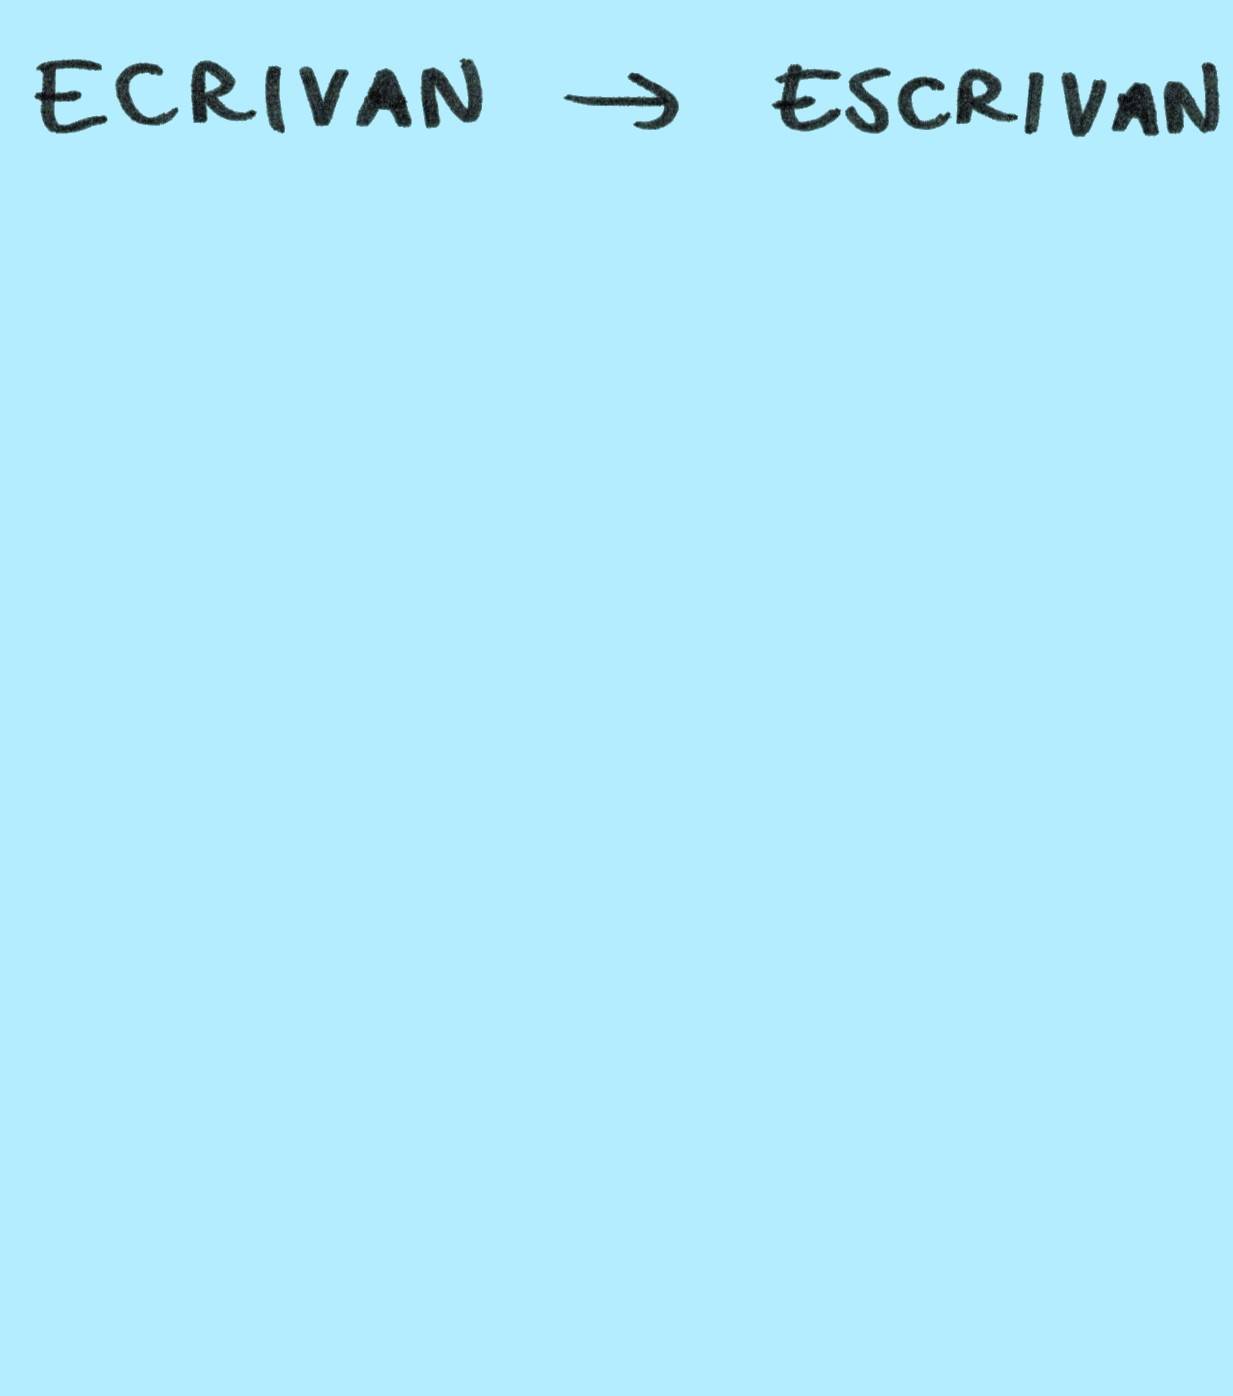 ECRIVAN → ESCRIVAN